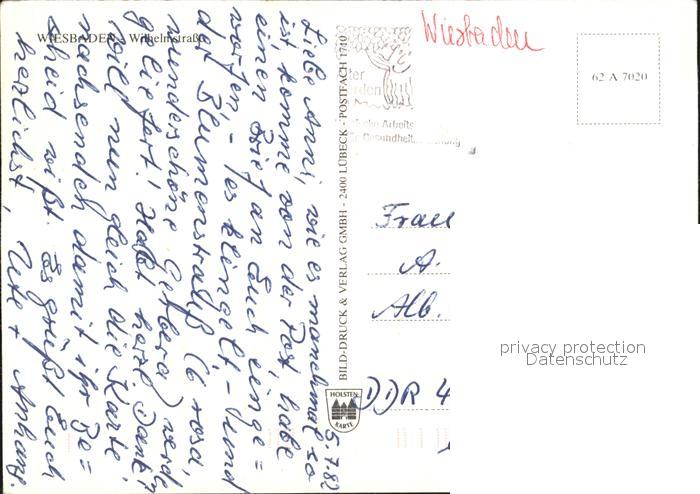 WIESBADEN - Wilhelmstraße
Wiesbaden
62 A 7020
BILD-DRUCK & VERLAG GMBH - 2400 LÜBECK - POSTFACH 1710
HOLSTEN
KARTE
Liebe Anni, wie es manchmal so
ist, komme von der Post, habe
einen Brief an Euch einge=
worfen, - es klingelt - und
der Blumenstrauß (6 rosa,
wunderschöne Gerbera) werden
geliefert! Habt herzl. Dank!
Will nun gleich die Karte
nachsenden damit ihr Be=
scheid wißt. Es grüßt Euch
herzlichst, Ute + Anhang.
5.7.82
Frau
A.
Alb.
DDR 4
privacy protection
Datenschutz